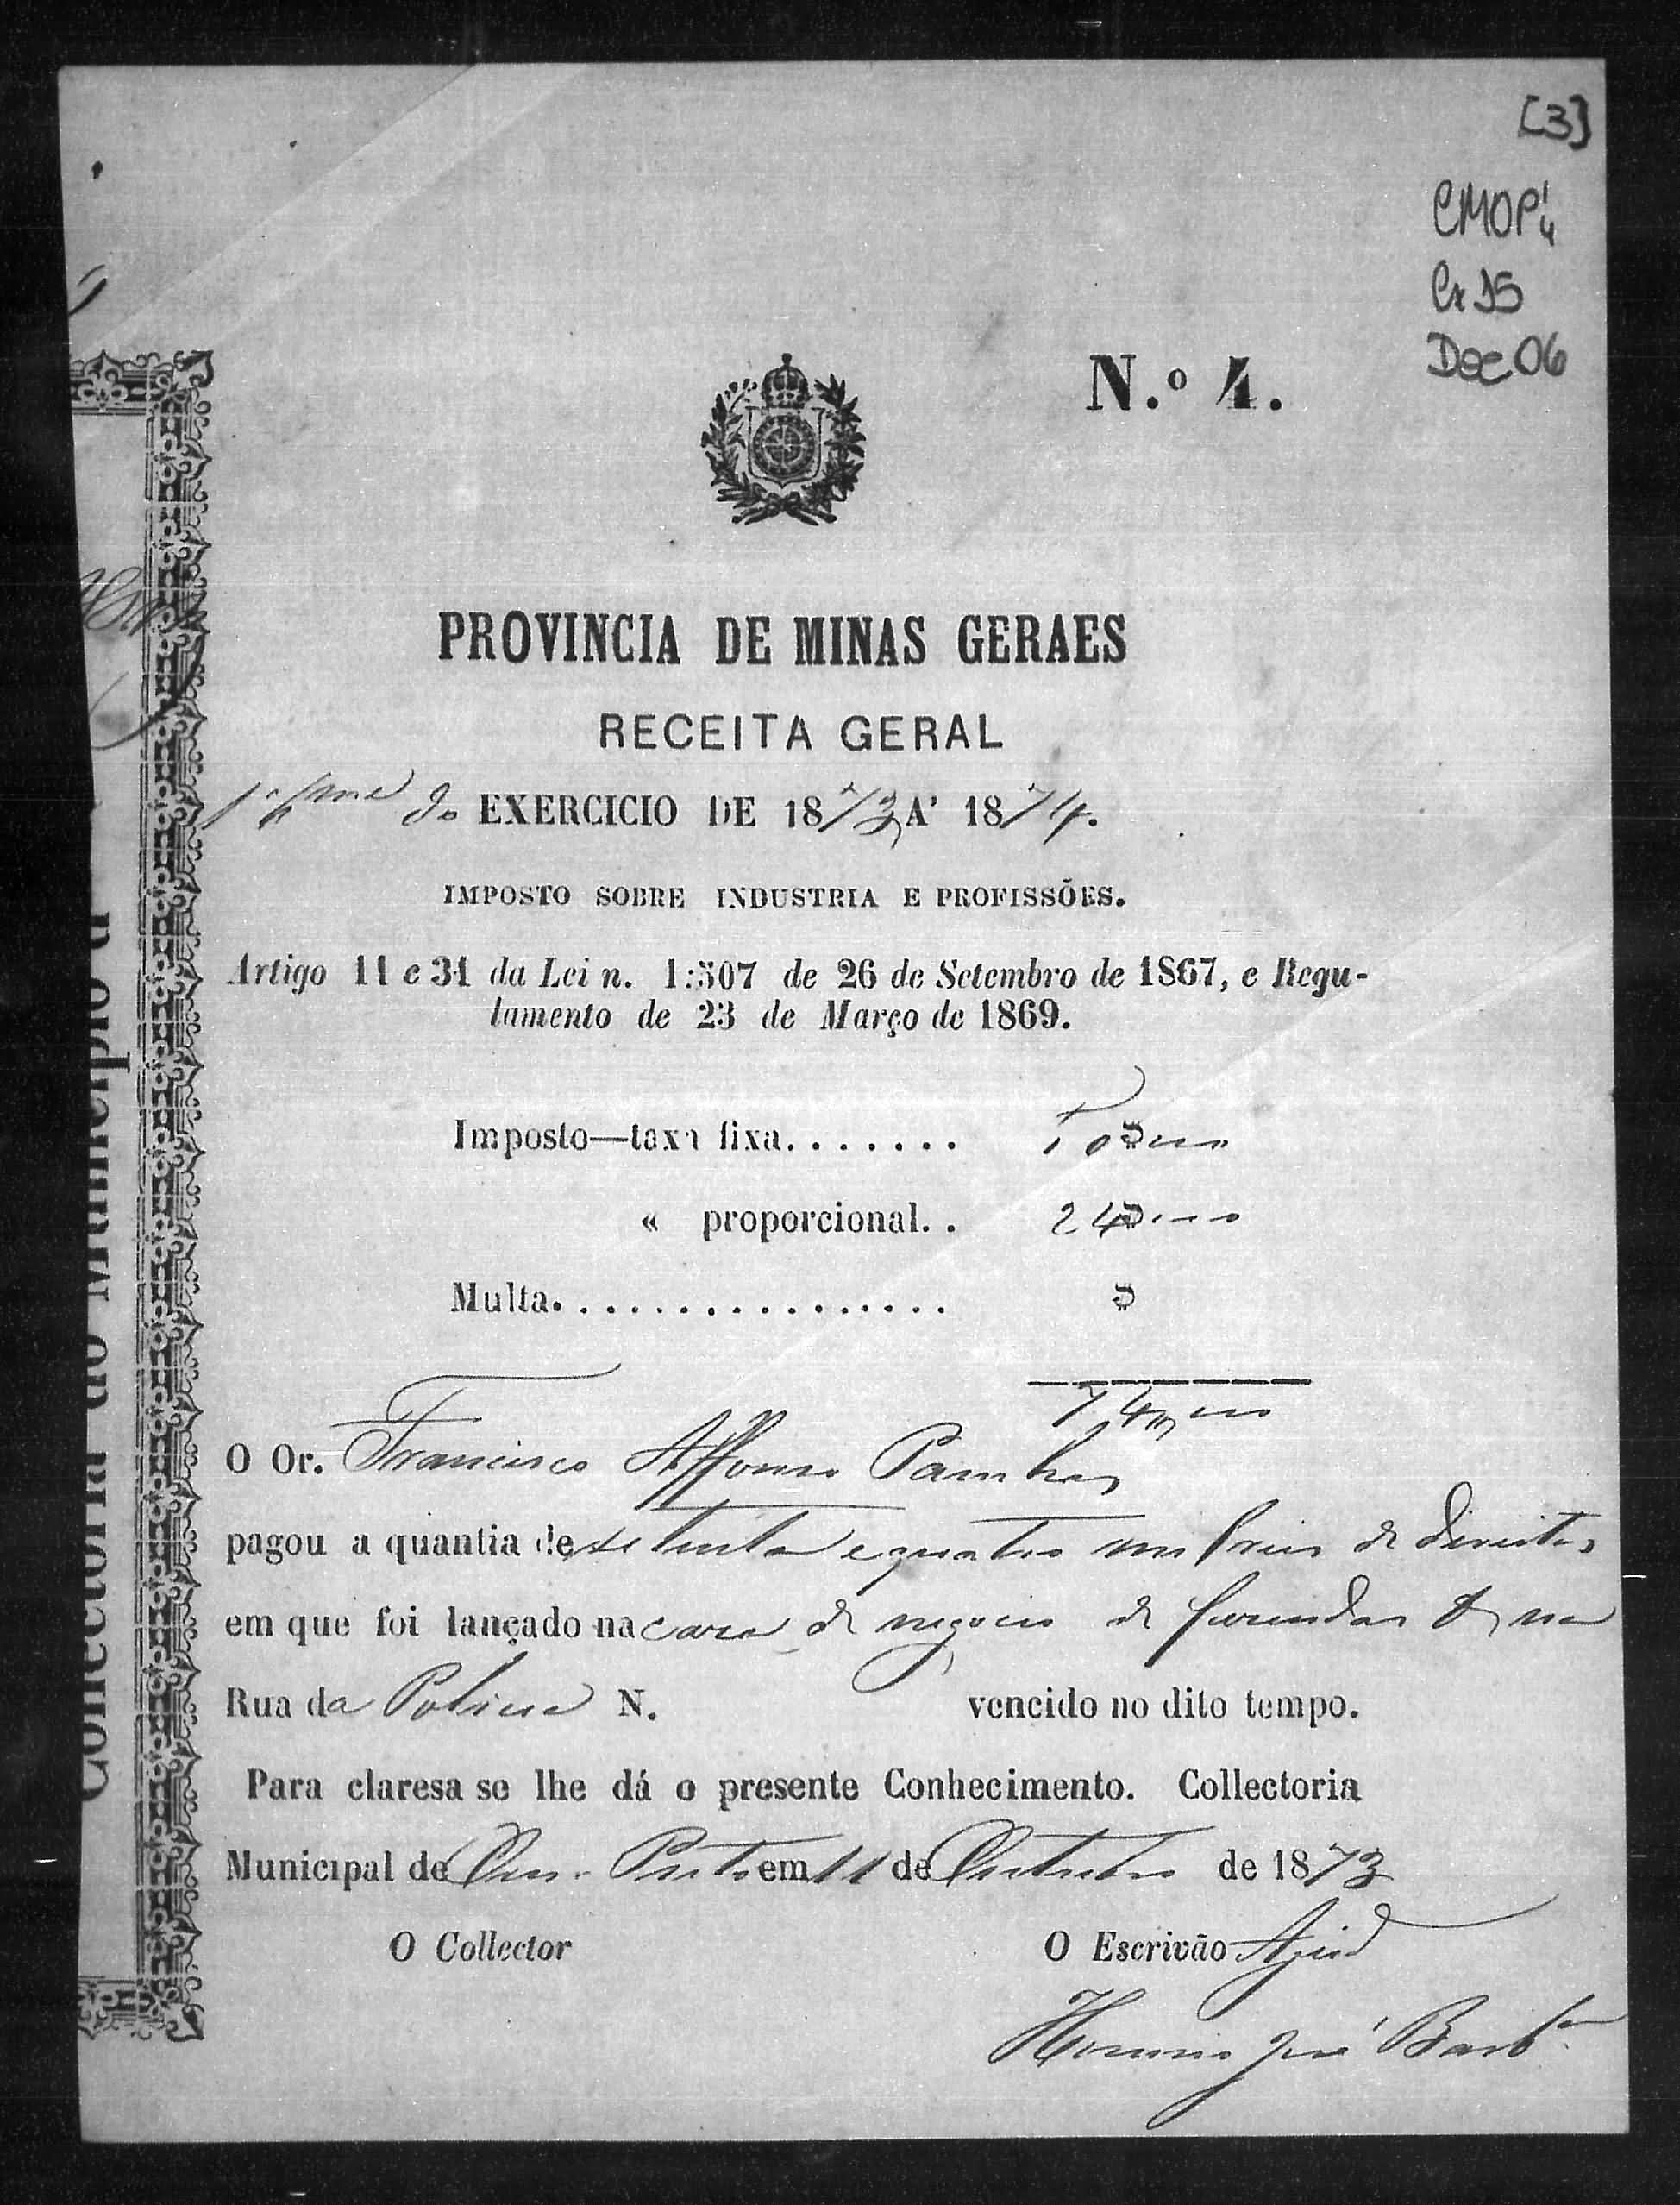 [3]
CMOP 1/4
Cx 15
Doc 06
N.º 4.
PROVINCIA DE MINAS GERAES
RECEITA GERAL
do EXERCICIO DE 1873 A' 1874.
IMPOSTO SOBRE INDUSTRIA E PROFISSÕES.
Artigo 11 e 31 da Lei n. 1:507 de 26 de Setembro de 1867, e Regu-
lamento de 23 de Março de 1869.
Imposto—taxa fixa. . . . . . .
« proporcional. . 24$000
Multa. . . . . . . . . . . . . . . . . $
74$000
O Or. Francisco Affonso Painhas
pagou a quantia de setenta e quatro mil reis de direitos
em que foi lançado na casa de negocio de fazendas & na
Rua da Policia N. vencido no dito tempo.
Para claresa se lhe dá o presente Conhecimento. Collectoria
Municipal de Ouro Preto em 11 de Outubro de 1873
O Collector O Escrivão Ajud
José Barb.ª
Collectoria do Municipio d